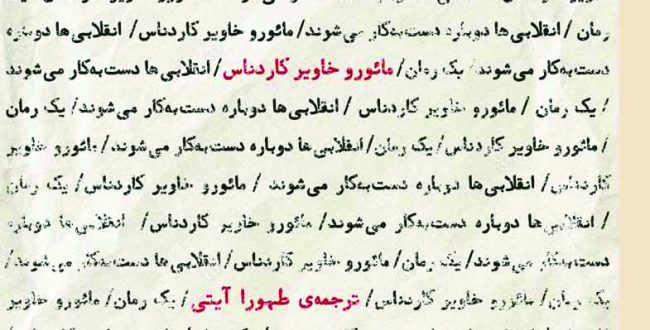 رمان / انقلابی‌ها دوباره دست‌به‌کار می‌شوند/ مائورو خاویر کاردناس/ انقلابی‌ها دوباره
دست‌به‌کار می‌شوند/ یک رمان/ مائورو خاویر کاردناس/ انقلابی‌ها دست‌به‌کار می‌شوند
/ یک رمان / مائورو خاویر کاردناس / انقلابی‌ها دوباره دست‌به‌کار می‌شوند/ یک رمان
/ مائورو خاویر کاردناس/ یک رمان/ انقلابی‌ها دوباره دست‌به‌کار می‌شوند/ مائورو خاویر
کاردناس/ انقلابی‌ها دوباره دست‌به‌کار می‌شوند / مائورو خاویر کاردناس/ یک رمان
/ انقلابی‌ها دوباره دست‌به‌کار می‌شوند/ مائورو خاویر کاردناس/ انقلابی‌ها دوباره
دست‌به‌کار می‌شوند/ یک رمان/ مائورو خاویر کاردناس/ انقلابی‌ها دست‌به‌کار می‌شوند/
یک رمان/ مائورو خاویر کاردناس/ ترجمه‌ی طهورا آیتی/ یک رمان/ مائورو خاویر